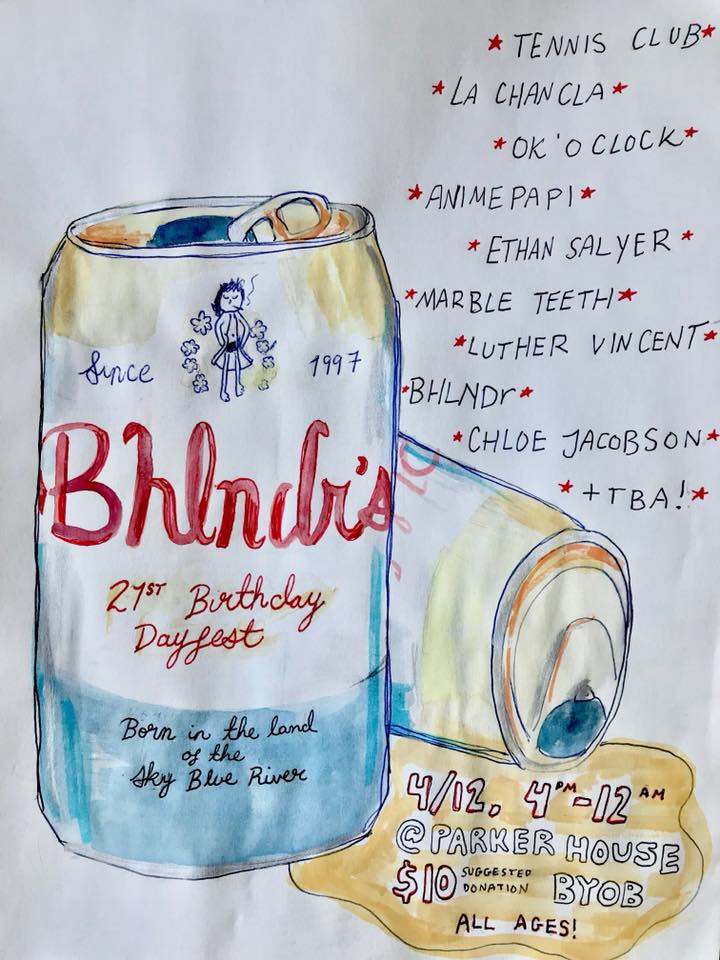 * TENNIS CLUB *
* LA CHANCLA *
* OK 'O CLOCK *
* ANIMEPAPI *
* ETHAN SALYER *
* MARBLE TEETH *
* LUTHER VINCENT *
BHLNDr *
* CHLOE JACOBSON *
* + TBA! *
Since 1997
Bhlndr's
21ST Birthday
Dayfest
Born in the land
of the
Sky Blue River
4/12, 4PM-12AM
@PARKER HOUSE
$10 SUGGESTED DONATION BYOB
ALL AGES!